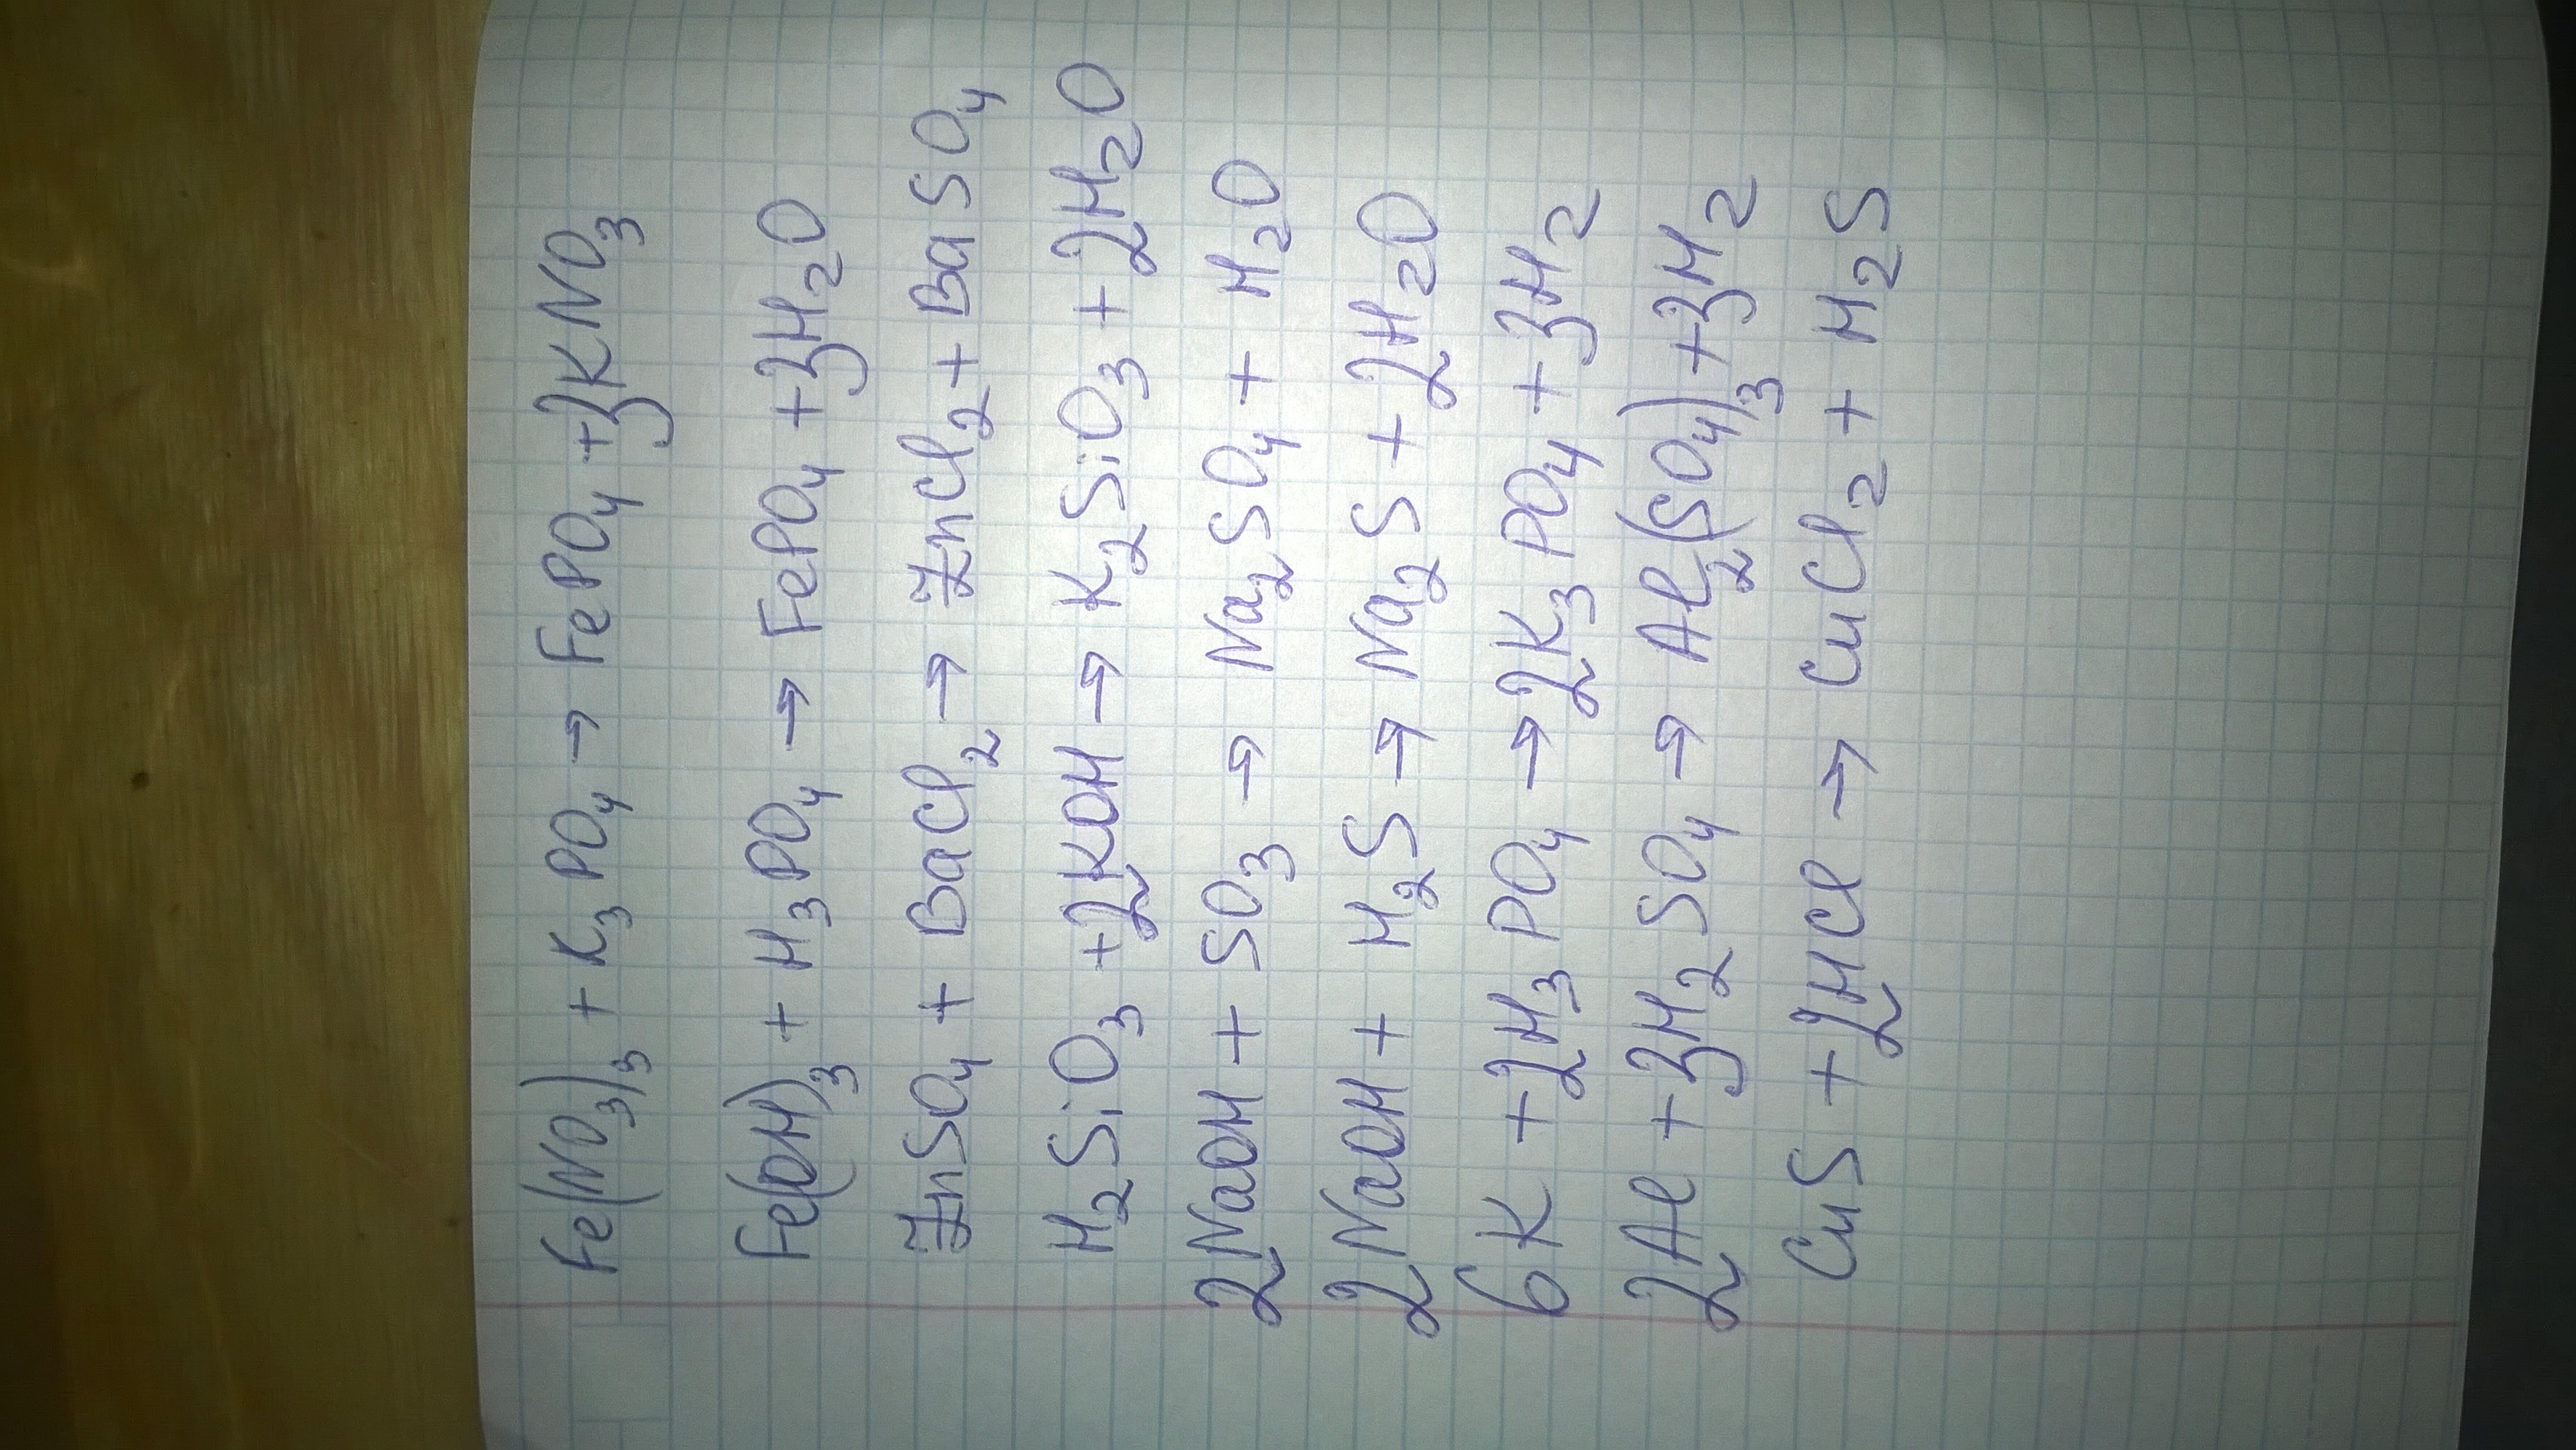 Fe(NO₃)₃ + K₃PO₄ → FePO₄ + 3KNO₃
Fe(OH)₃ + H₃PO₄ → FePO₄ + 3H₂O
ZnSO₄ + BaCl₂ → ZnCl₂ + BaSO₄
H₂SiO₃ + 2KOH → K₂SiO₃ + 2H₂O
2NaOH + SO₃ → Na₂SO₄ + H₂O
2NaOH + H₂S → Na₂S + 2H₂O
6K + 2H₃PO₄ → 2K₃PO₄ + 3H₂
2Al + 3H₂SO₄ → Al₂(SO₄)₃ + 3H₂
CuS + 2HCl → CuCl₂ + H₂S